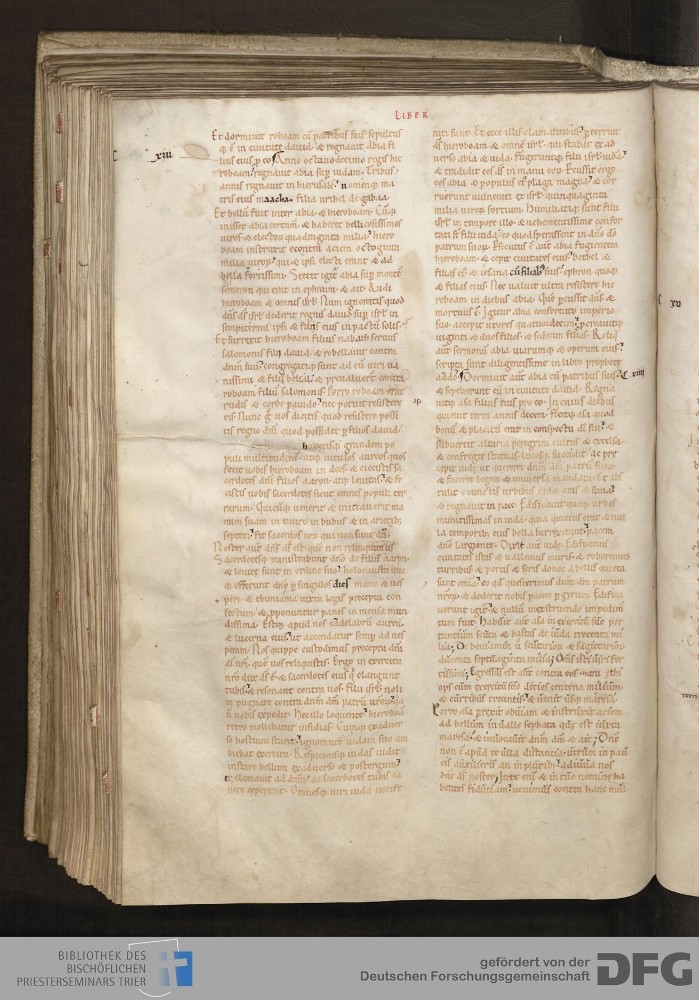 LIBER
xiii
Et dormiuit roboam cū patribus suis sepultus
q; ē in ciuitate dauid. & regnauit abia fi
lius eius p eo. Anno octauo decimo regis hie
roboam regnauit abia sup iudam. Tribus
annis regnauit in hierusalē. nomenq; ma
tris eius maacha. filia urihel de gabaa.
Et bellū fuit inter abia. & hieroboam. Cūq;
inisset abia certamē. & haberet bellicosissimos
uiros. & electos quadraginta milia. hiero
boam instruxit econtra aciem octoginta
milia uiroꝝ. qui & ipsi electi erant & ad
bella fortissimi. Stetit igit abia sup montē
semeron qui erat in ephraim. & ait. Audi
hieroboam & omnis isrl. Num ignoratis quod
dn̄s ds̄ isrl dederit regnū dauid sup isrl in
sempiternū ipsi & filijs eius in pactū salis.
Et surrexit hieroboam filius nabath seruus
salomonis filij dauid. & rebellauit contra
dnm̄ suū. congregatiq; sunt ad eū uiri ua
nissimi & filij belial. & preualuerт contra
roboam filiū salomonis. Porro roboam erat
rudis & corde pauido. nec potuit resistere
eis. Nunc g uos dicitis quod resistere possi
tis regno dn̄i quod possidet p filios dauid.
habetisq; grandem po
puli multitudinē. atq; uitulos aureos quos
fecit uobis hieroboam in deos. & eiecistis sa
cerdotes dn̄i filios aaron. atq; leuitas. & fe
cistis uobis sacerdotes sicut omnes populi ter
rarum. Quicūq; uenerit & initiauerit ma
num suam in tauro in bubus & in arietibꝫ
septem. fit sacerdos eoꝝ qui non sunt dii.
Noster aut dn̄s ds̄ est. quē non relinquimus.
Sacerdotesq; ministrabunt dn̄o de filijs aaron.
& leuitę sunt in ordine suo. holocausta quoq;
offerunt dn̄o p singulos dies mane & ues
pere. & thimiama iuxta legis precepta con
fectum. & pponuntur panes in mensa mun
dissima. Estq; apud nos candelabrū aureū.
& lucerna eius. ut accendatur semp ad ues
peram. Nos quippe custodimus precepta dn̄i
dī nr̄i. quē uos reliquistis. Ergo in exercitu
nr̄o dux ds̄ ē. & sacerdotes eius q clangunt
tubis. & resonant contra uos. filii isrl noli
te pugnare contra dnm̄ dm̄ patrū uroꝝ. qa
n̄ nobis expedit. Hęc illo loquente. hieroboā
retro moliebatur insidias. Cūq; ex aduer
so hostium staret. ignorantē iudam suo am
biebat exercitu. Respiciensq; iudas uidit
instare bellum ex aduerso & post tergum.
et clamauit ad dnm̄. ac sacerdotes tubis ca
nere ceperunt. Omnesq; uiri iuda uocife
rati sunt. Et ecce illis clamantibus. pterruit
ds̄ hieroboam & omnē isrl. qui stabat ex ad
uerso abia & iuda. fugeruntq; filii isrl iudā.
& tradidit eos ds̄ in manu eoꝝ. Percussit ergo
eos abia & populus eiꝰ plaga magna. & cor
ruerunt uulnerati ex isrl. quinquaginta
milia uiroꝝ fortium. Humiliatiq; sunt filii
isrl in tempore illo. & uehementissime confor
tati st̄ filii iuda. eo quod sperassent in dn̄o dō
patrum suoꝝ. Psecutus ē aut abia fugientem
hieroboam. & cepit ciuitates eius. bethel &
filias eiꝰ. & iesana cū filiabꝫ suis. ephron quoq;
& filias eius. Nec ualuit ultra resistere hie
roboam in diebus abia. Quē pcussit dn̄s. &
mortuus ē. Igitur abia confortato imperio
suo. accepit uxores quattuordecim. pcreauitq;
uiginti & duos filios. & sedecim filias. Reliq
aut sermonū abia. uiarumq; & operum eius.
scripta sunt diligentissime in libro prophetę
addo. Dormiuit aut abia cū patribus suis.
C xiiii
& sepelierunt eū in ciuitate dauid. Regna
uitq; asa filius eius pro eo. In cuius diebus
quieuit terra annis decem. Fecitq; asa quod
bonū & placitū erat in conspectu dī sui. &
subuertit altaria peregrini cultus & excelsa.
& confregit statuas. lucosq; succidit. ac pre
cepit iudę ut quereret dnm̄ dm̄ patrū suoꝝ.
& faceret legem & uniuersa mandata. Et abs
tulit e cunctis urbibus iuda aras & fana.
& regnauit in pace. Edificauit quoq; urbes
munitissimas in iuda. quia quietus erat & nul
la temporibꝫ eius bella surrexerant. pacem
dn̄o largiente. Dixit aut iudę. Edificemus
ciuitates istas & uallemus muris. & roboremus
turribus & portis & seris donec a bellis quieta
sunt omia. eo qd quesierimus dnm̄ dm̄ patrum
nr̄oꝝ. & dederit nobis pacem p gyrum. Edifica
uerunt igit. & nullū in extruendo impedim̄
tum fuit. Habuit aut asa in exercitu suo por
tantium scuta & hastas de iuda trecenta mi
lia. De beniamin ū scutarioꝝ & sagittarioꝝ
ducenta septuaginta milia. Om̄s isti uiri for
tissimi. Egressus est aut contra eos zara ęthi
ops cum exercitu suo decies centena milium.
& curribus trecentis. & uenit usq; maresa.
Porro asa prexit obuiam & instruxit aciem
ad bellum in ualle sephata quę est iuxta
maresa. & inuocauit dnm̄ dm̄ & ait. Dn̄e
non ē apud te ulla distantia. utrum in pau
cis auxilieris an in pluribꝫ. adiuua nos
dn̄e ds̄ noster. In te eni & in tuo nomine ha
bentes fiduciam. uenimus contra hanc mul
C xv
BIBLIOTHEK DES
BISCHÖFLICHEN
PRIESTERSEMINARS TRIER
gefördert von der
Deutschen Forschungsgemeinschaft
DFG